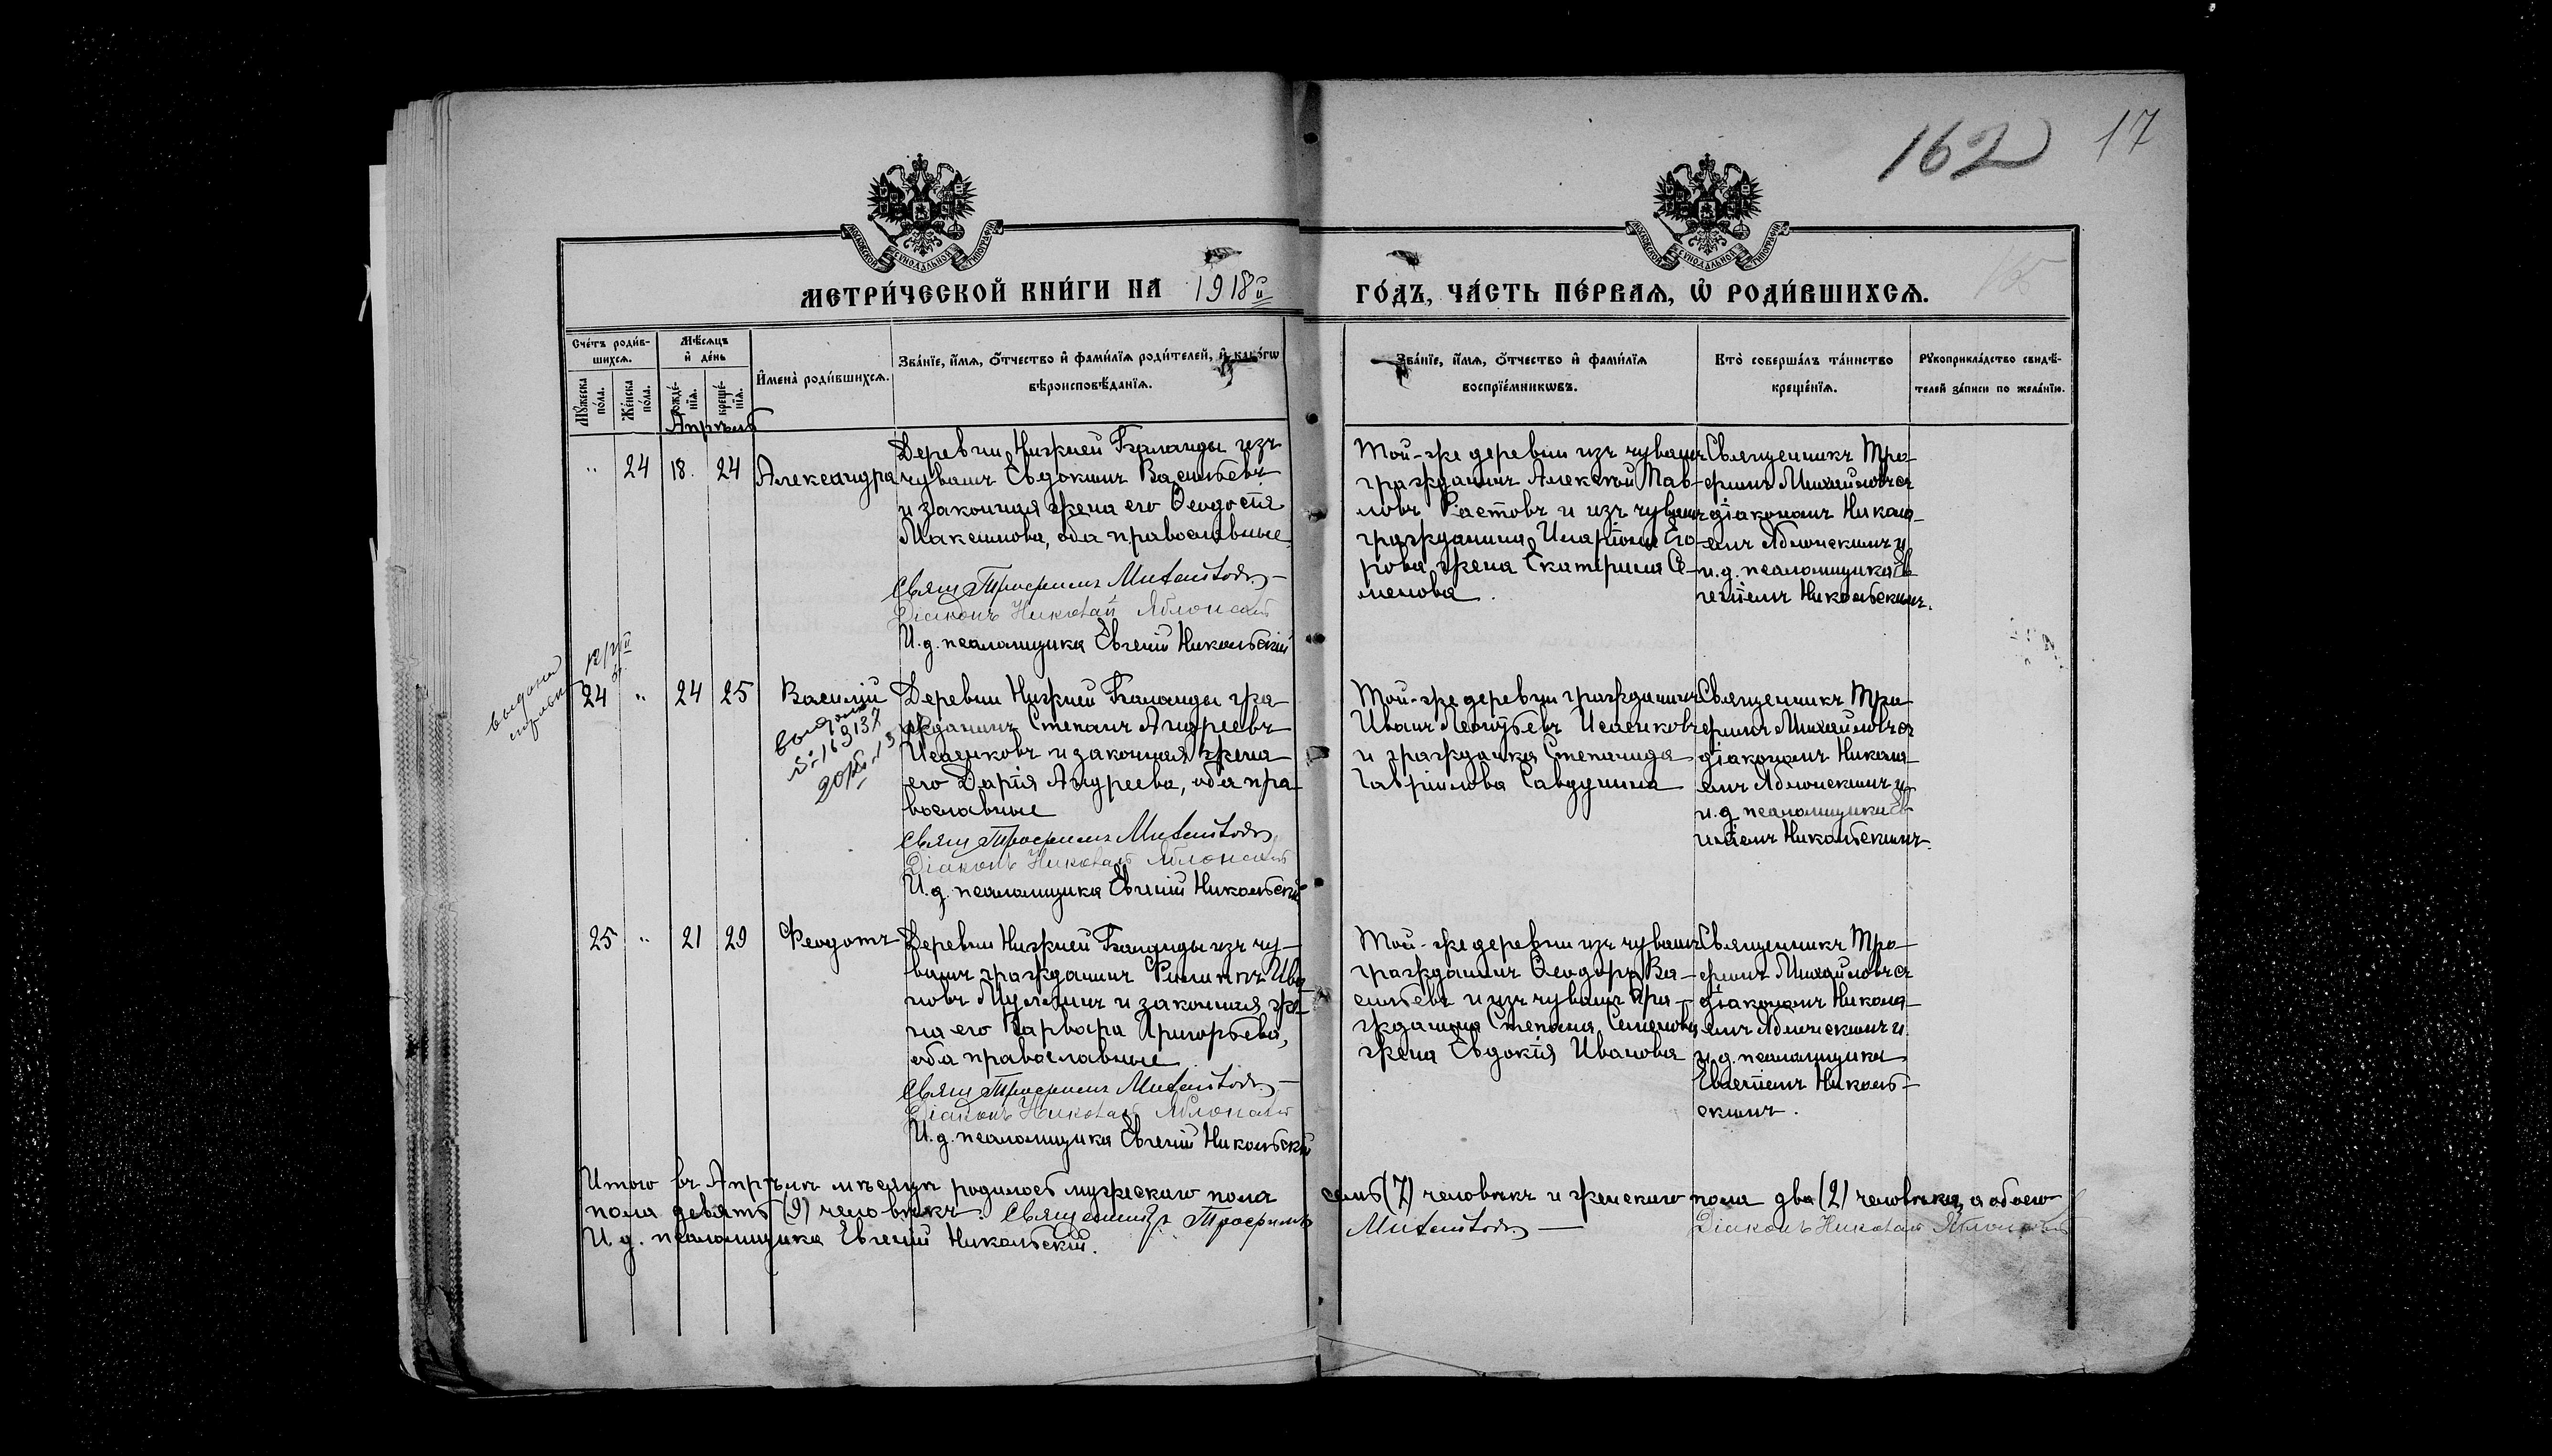 162 17
МОСКОВСКОЙ СѴНОДАЛЬНОЙ ТИПОГРАФІИ
МОСКОВСКОЙ СѴНОДАЛЬНОЙ ТИПОГРАФІИ
МЕТРИ́ЧЕСКОЙ КНИ́ГИ НА 1918й ГО́ДЪ, ЧА́СТЬ ПЕ́РВАѦ, Ѡ҆ РОДИ́ВШИХСѦ.
Сче́тъ роди́в-
шихся.
Мꙋ́жеска по́ла.
Же́нска по́ла.
Мѣ́сяцъ и҆ де́нь
рожде́-
нїя.
креще́-
нїя.
И҆мена̀ роди́вшихся.
Зва́нїе, и҆́мя, ѻ҆́тчество и҆ фами́лїя роди́телей, и҆ како́гѡ
вѣроисповѣ́данїя.
Зва́нїе, и҆́мя, ѻ҆́тчество и҆ фами́лїя
воспрїе́мникѡвъ.
Кто̀ соверша́лъ та́инство
креще́нїя.
Рꙋкоприкла́дство свидѣ́-
телей за́писи по жела́нїю.
Апрѣль
" 24 18. 24 Александра
Деревни Нижней Каланды изъ
чувашъ Евдокимъ Васильевъ
и законная жена его Ѳеодосія
Максимова, оба православные.
Свящ Трофимъ Михайловъ
Діаконъ Николай Яблонскій
И.д. псаломщика Евгеній Никольскій
Той-же деревни изъ чувашъ
гражданинъ Алексѣй Пав-
ловъ Растовъ и изъ чувашъ
гражданина Иларіона Его-
рова жена Екатерина Се-
менова.
Священникъ Тро-
фимъ Михайловъ съ
діакономъ Никола-
емъ Яблонскимъ и
и.д. псаломщика Ев-
геніемъ Никольскимъ.
выдана
24 " 24 25 Василій
выдана
№ 169137
Деревни Нижней Каланды гра-
жданинъ Степанъ Андреевъ
Исаенковъ и законная жена
его Дарія Андреева, оба пра-
вославные
Свящ Трофимъ Михайловъ
Діаконъ Николай Яблонскій
И.д. псаломщика Евгеній Никольскій
Той-же деревни гражданинъ
Иванъ Леонтьевъ Исаенковъ
и гражданка Степанида
Гавріилова Савдунина
Священникъ Тро-
фимъ Михайловъ съ
діакономъ Никола-
емъ Яблонскимъ и
и.д. псаломщика Ев-
геніемъ Никольскимъ.
25 " 21 29 Феодотъ
Деревни Нижней Каланды изъ чу-
вашъ гражданинъ Филиппъ Ива-
новъ и законная же-
на его Варвара Григорьева,
оба православные
Свящ Трофимъ Михайловъ
Діаконъ Николай Яблонскій
И.д. псаломщика Евгеній Никольскій
Той-же деревни изъ чувашъ
гражданинъ Ѳеодоръ Ва-
сильевъ и изъ чувашъ гра-
жданина Степана Семенова
жена Евдокія Иванова
Священникъ Тро-
фимъ Михайловъ съ
діакономъ Никола-
емъ Яблонскимъ и
и.д. псаломщика
Евгеніемъ Николь-
скимъ.
Итого въ Апрѣлѣ мѣсяцѣ родилось мужескаго пола семь (7) человѣкъ и женскаго пола два (2) человѣка, а обоего
пола девять (9) человѣкъ. Священникъ Трофимъ Михайловъ Діаконъ Николай Яблонскій
И.д. псаломщика Евгеній Никольскій.